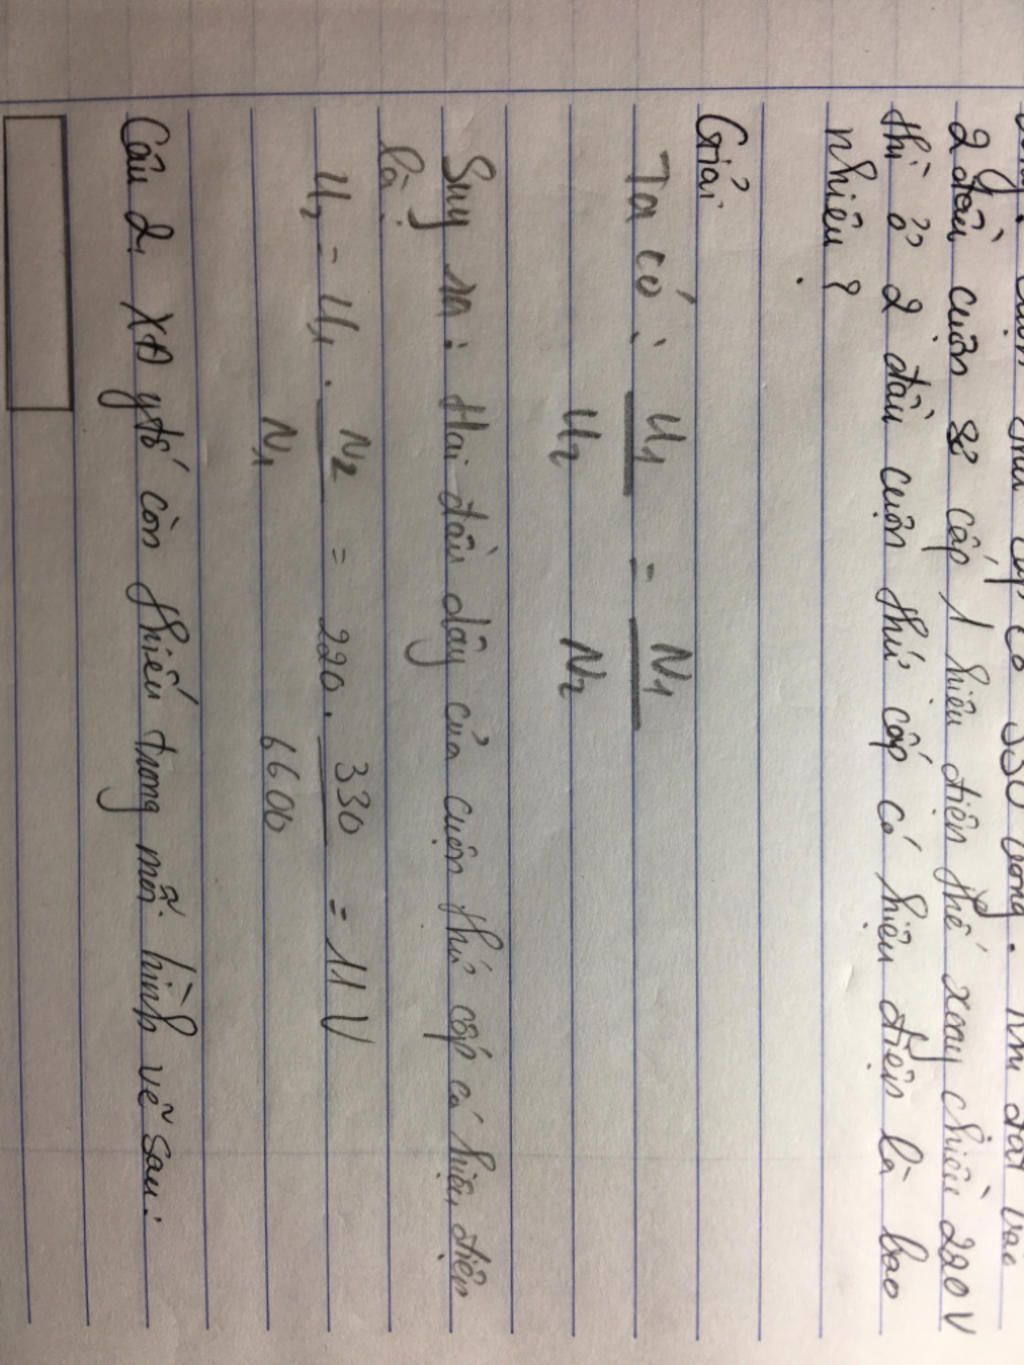 cuộn thứ cấp có 330 vòng. Khi đặt vào
2 đầu cuộn sơ cấp 1 hiệu điện thế xoay chiều 220V
thì ở 2 đầu cuộn thứ cấp có hiệu điện là bao
nhiêu?
Giải
Ta có: U1 / U2 = N1 / N2
Suy ra: Hai đầu dây của cuộn thứ cấp có hiệu điện
là:
U2 = U1 . N2 / N1 = 220 . 330 / 6600 = 11 V
Câu 2, XĐ ytố còn thiếu trong mỗi hình vẽ sau: